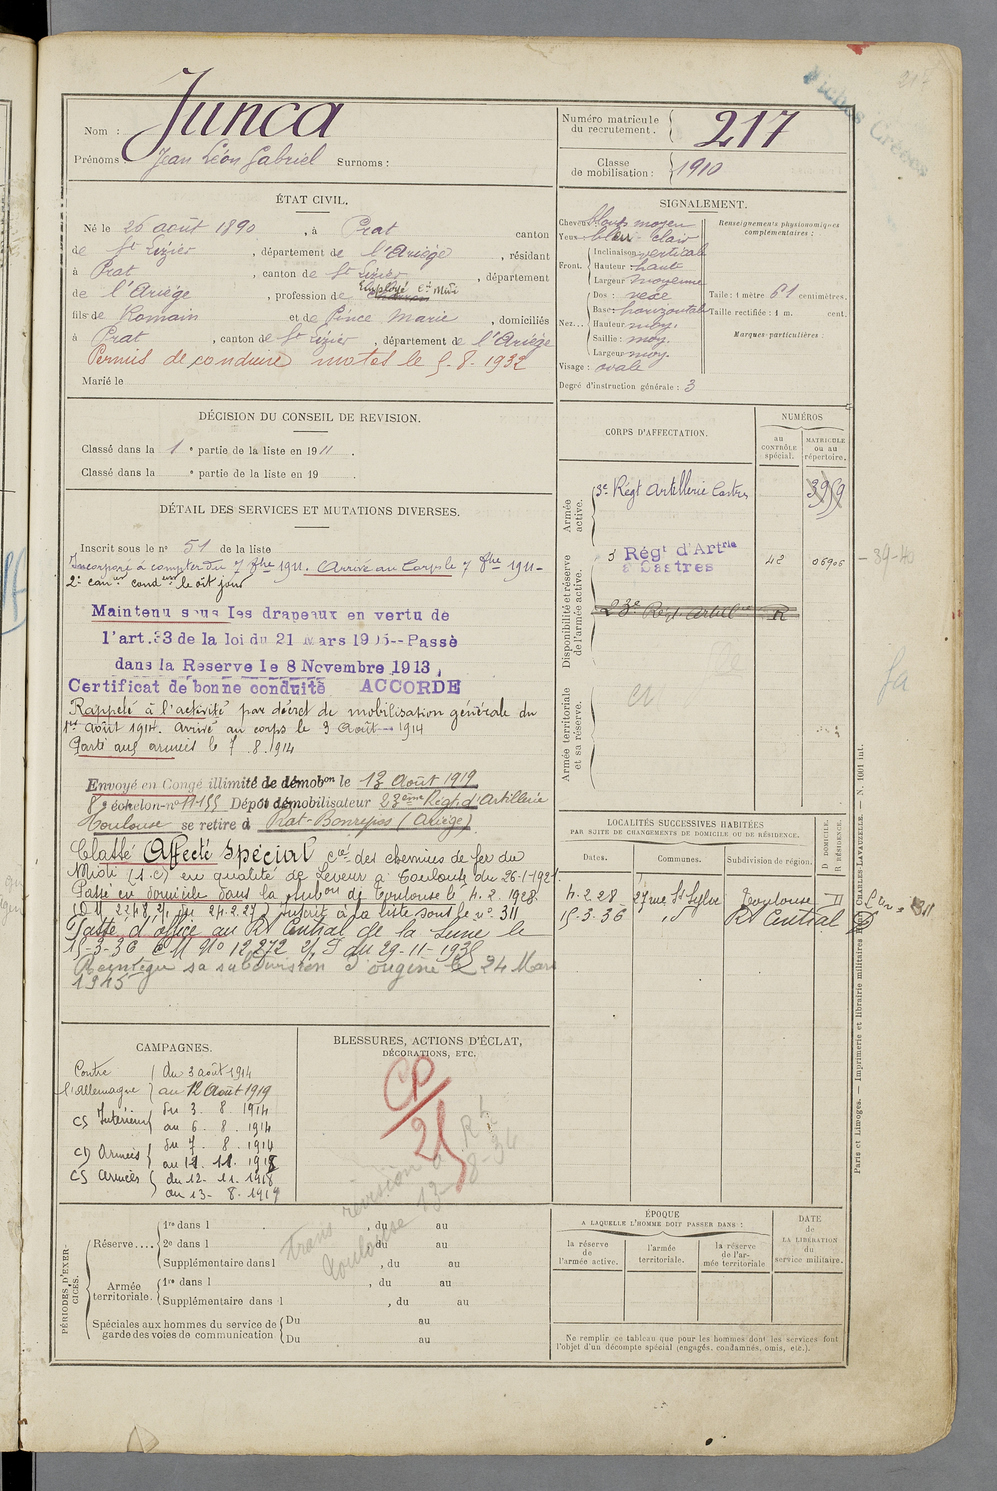 Fiches Créées
217
Nom : Junca
Prénoms : Jean Léon Gabriel Surnoms :
Numéro matricule du recrutement. 217
Classe de mobilisation : 1910
ÉTAT CIVIL.
Né le 26 août 1890, à Prat canton
de St Lizier, département de l'Ariège, résidant
à Prat, canton de St Lizier, département
de l'Ariège, profession de Employé Cie Midi
fils de Romain et de Pince Marie, domiciliés
à Prat, canton de St Lizier, département de l'Ariège
Permis de conduire motos le 5-8-1932
Marié le
SIGNALEMENT.
Cheveux blonds moyen
Yeux bleu-clair
Front. Inclinaison verticale
Hauteur haut
Largeur moyenne
Nez... Dos : vexe
Base: horizontale
Hauteur moy.
Saillie : moy.
Largeur moy.
Visage : ovale
Degré d'instruction générale : 3
Renseignements physionomiques complémentaires :
Taille : 1 mètre 61 centimètres.
Taille rectifiée : 1 m. cent.
Marques particulières :
DÉCISION DU CONSEIL DE REVISION.
Classé dans la 1e partie de la liste en 1911.
Classé dans la e partie de la liste en 19 .
DÉTAIL DES SERVICES ET MUTATIONS DIVERSES.
Inscrit sous le no 51 de la liste
Incorporé à compter du 7 8bre 1911. Arrivé au Corps le 7 8bre 1911-
2e can. cond. le dit jour
Maintenu sous les drapeaux en vertu de
l'art.33 de la loi du 21 Mars 1905--Passé
dans la Reserve le 8 Novembre 1913,
Certificat de bonne conduite ACCORDE
Rappelé à l'activité par décret de mobilisation générale du
1er août 1914. Arrivé au corps le 3 Août 1914
Parti aux armées le 7.8.1914
Envoyé en Congé illimité de démobon le 13 Août 1919
8e échelon-no 11-155 Dépôt démobilisateur 23ème Régt d'Artillerie
Toulouse se retire à Prat-Bonrepos (Ariège)
Classé Affecté Spécial Cie des chemins de fer du
Midi (1.C) en qualité de Leveur à Toulouse du 26-1-1921.
Passé en domicile dans la subon de Toulouse le 4.2.1928.
inscrit à la liste sous le no 311
Passé d'office au Rt Central de la Seine le
15-3-36 C M no 12,272 2/S du 29-11-1935
Réintégré sa subdivision d'origine le 24 Mars
1915
CORPS D'AFFECTATION.
NUMÉROS
au CONTRÔLE spécial.
MATRICULE ou au répertoire.
Armée active.
3e Régt Artillerie Castres 3959
Disponibilité et réserve de l'armée active.
3 Régt d'Artrie à Castres 42 06906 - 39-40
23e Régt Artill
Armée territoriale et sa réserve.
LOCALITÉS SUCCESSIVES HABITÉES
PAR SUITE DE CHANGEMENTS DE DOMICILE OU DE RÉSIDENCE.
Dates. Communes. Subdivision de région. D DOMICILE. R RÉSIDENCE.
4-2-28 27 rue St Sylve Toulouse D
15-3-36 Rt Central D
CAMPAGNES.
Contre l'Allemagne du 3 août 1914
au 12 Août 1919
CS Intérieur du 3.8.1914
au 6.8.1914
CD Armées du 7.8.1914
au 11.11.1918
CS Armées du 12-11-1918
au 13-8-1919
BLESSURES, ACTIONS D'ÉCLAT, DÉCORATIONS, ETC.
CP/25
PÉRIODES D'EXERCICES.
Réserve.... 1re dans l , du au
2e dans l , du au
Supplémentaire dans l , du au
Armée territoriale. 1re dans l , du au
Supplémentaire dans l , du au
Spéciales aux hommes du service de garde des voies de communication Du au
Du au
ÉPOQUE
A LAQUELLE L'HOMME DOIT PASSER DANS :
la réserve de l'armée active.
l'armée territoriale.
la réserve de l'armée territoriale
DATE de LA LIBÉRATION du service militaire.
Ne remplir ce tableau que pour les hommes dont les services font
l'objet d'un décompte spécial (engagés, condamnés, omis, etc.).
Paris et Limoges. — Imprimerie et librairie militaires Henri CHARLES-LAVAUZELLE. — N. 1001 int.